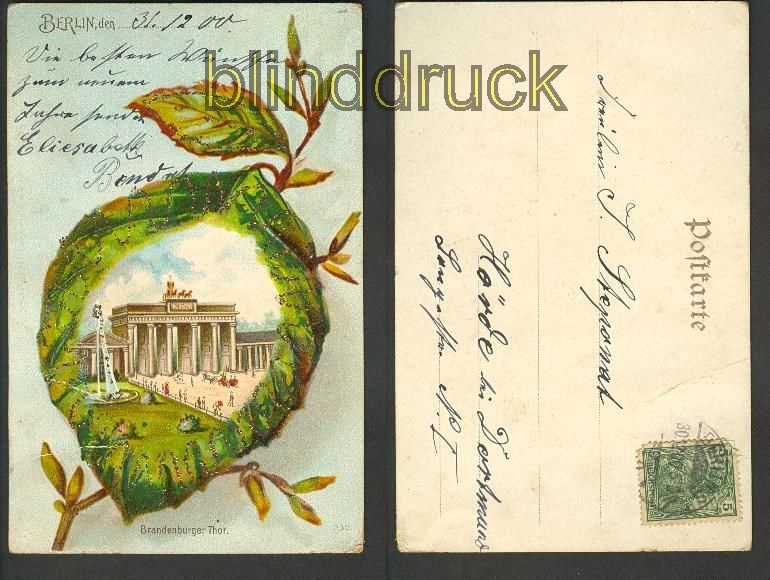 BERLIN, den 31.12 00.
Die besten Wünsche
zum neuen
Jahre sendet
Eliesabeth
blinddruck
Brandenburger Thor.
Postkarte
Fräulein J. Steponat
Hörde bei Dortmund
5